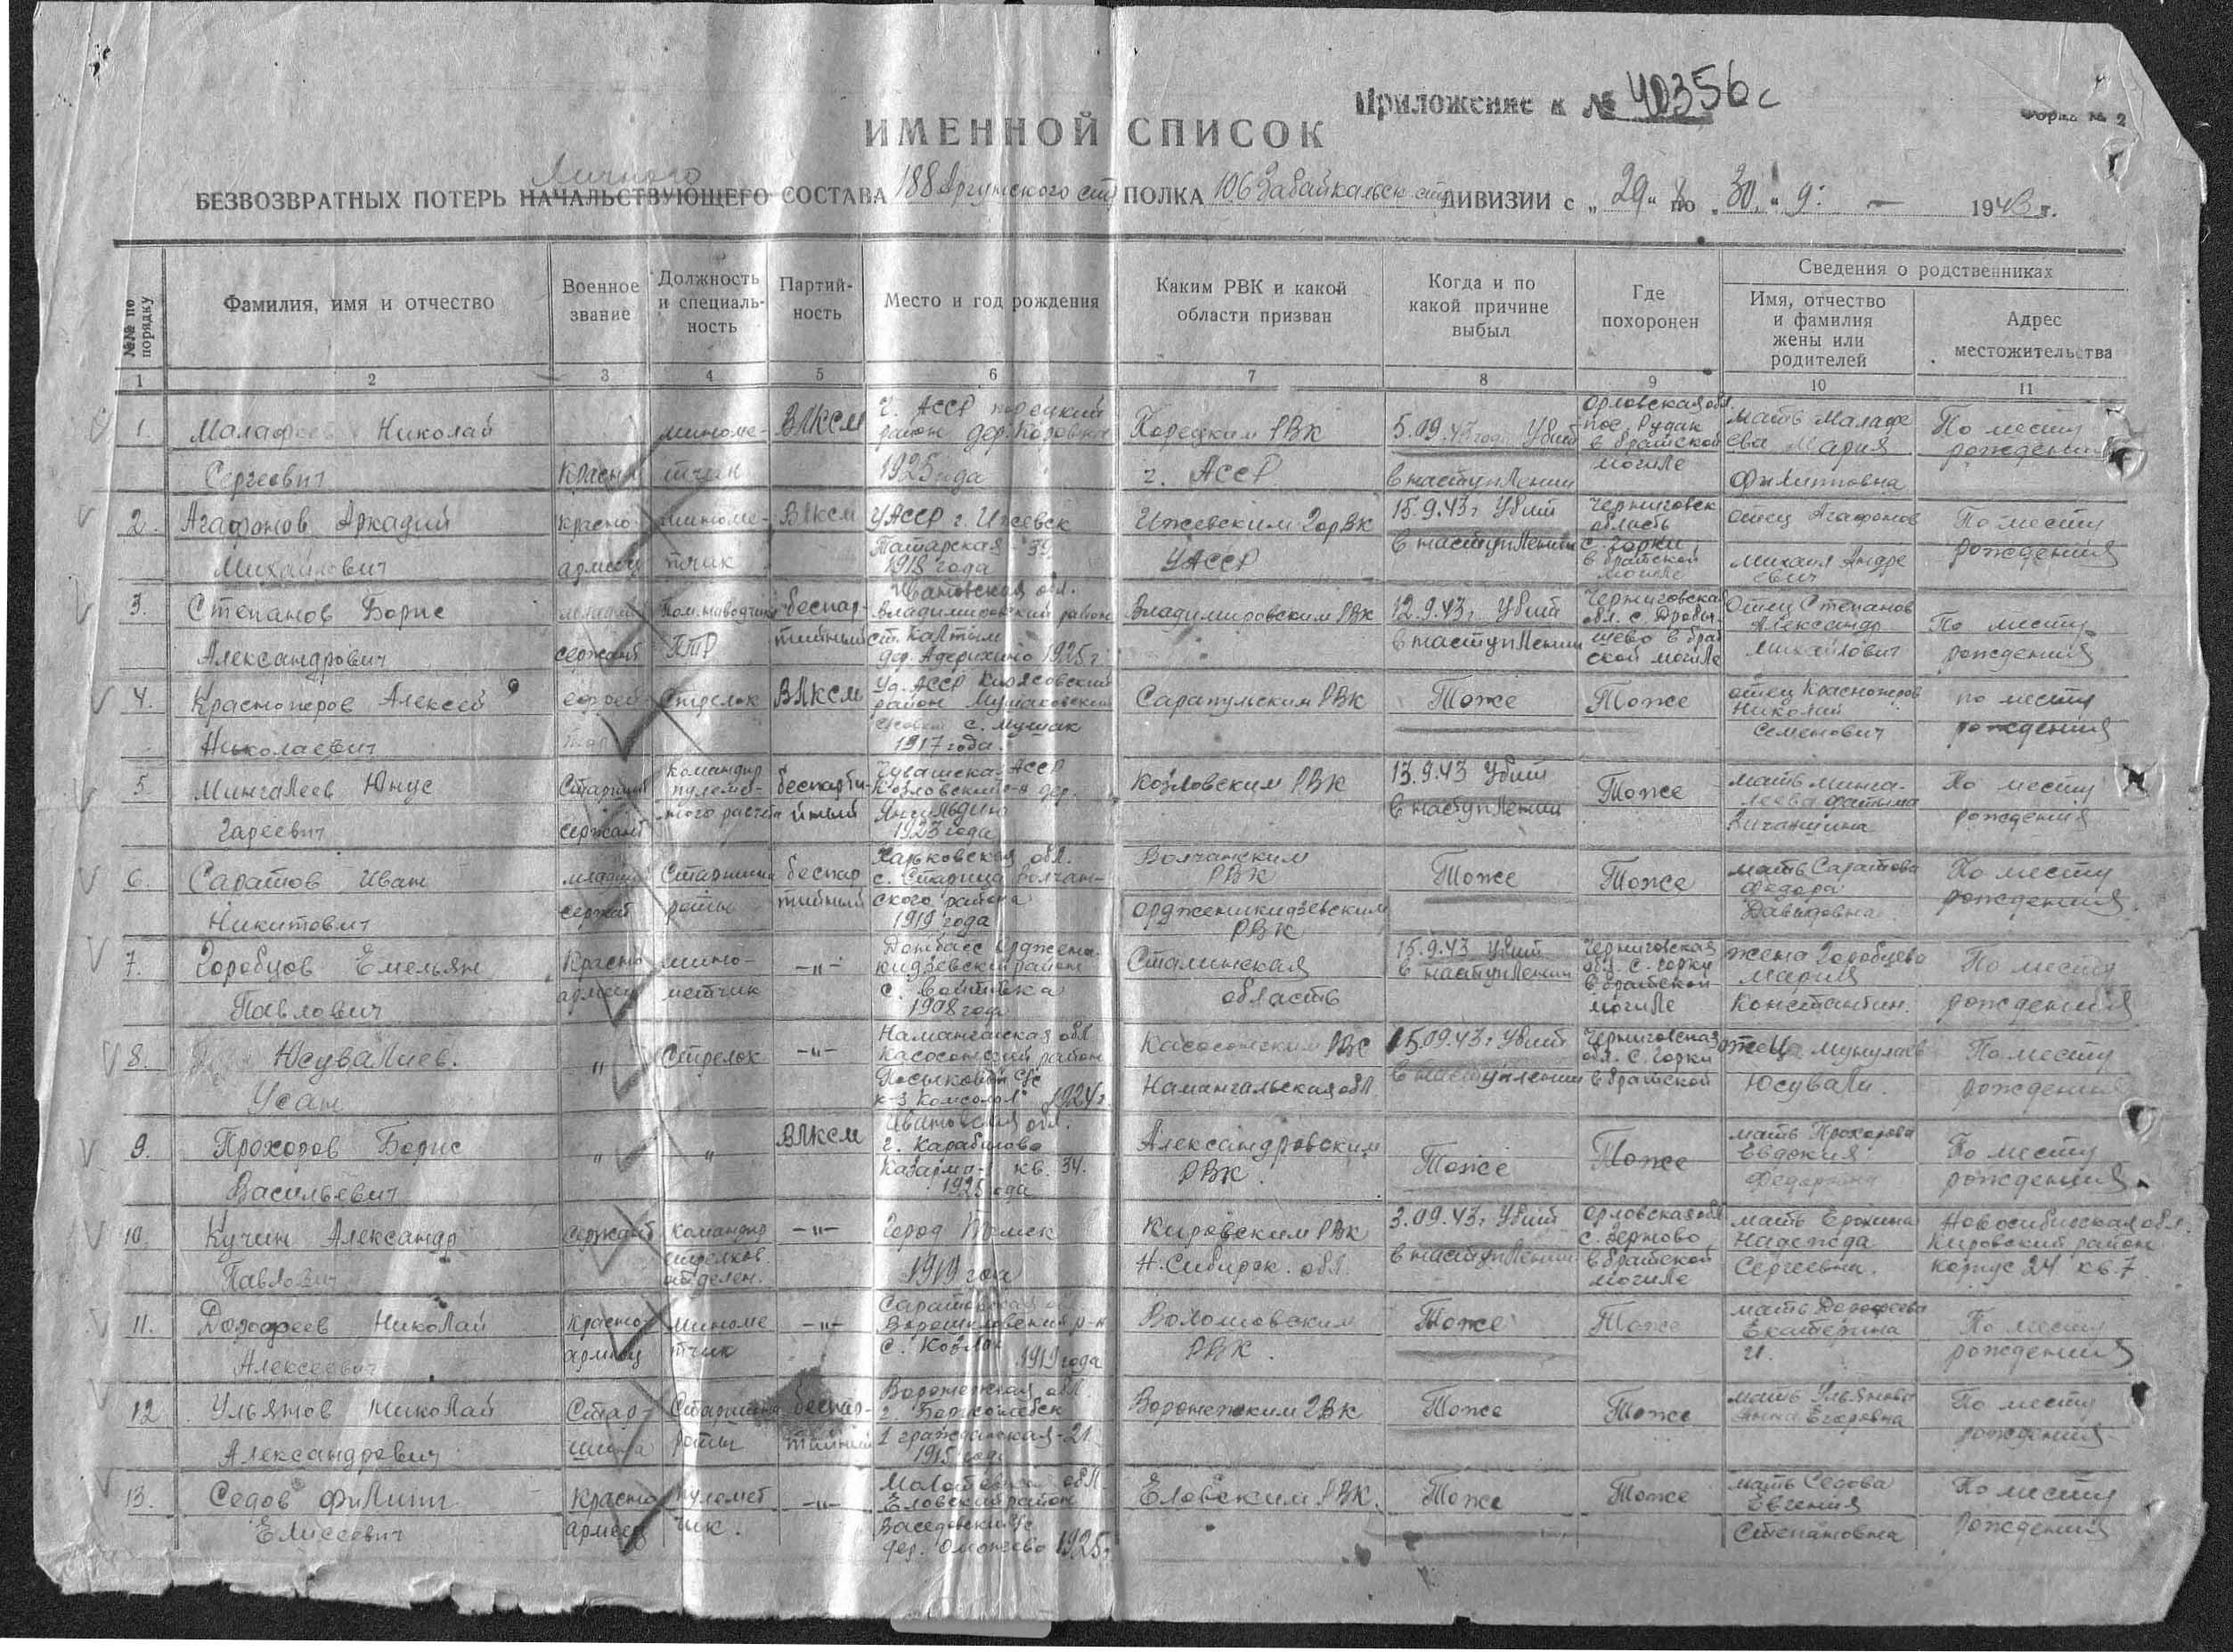 Приложение к № 40356с
Форма № 2
ИМЕННОЙ СПИСОК
Личного
БЕЗВОЗВРАТНЫХ ПОТЕРЬ НАЧАЛЬСТВУЮЩЕГО СОСТАВА 188 Аргунского сп ПОЛКА 106 Забайкальск ДИВИЗИИ с „29“ 8 по „30“ 9. – 1943 г.
№№ по порядку
Фамилия, имя и отчество
Военное звание
Должность и специаль-ность
Партий-ность
Место и год рождения
Каким РВК и какой области призван
Когда и по какой причине выбыл
Где похоронен
Сведения о родственниках
Имя, отчество и фамилия жены или родителей
Адрес местожительства
1 2 3 4 5 6 7 8 9 10 11
1. Малафеев Николай Сергеевич Красн миноме-тчик ВЛКСМ Ч. АССР район дер. 1925 года Порецким РВК Ч. АССР 5.09.43 года Убит в наступлении Орловская обл. пос. Рудак в братской могиле мать Малафеева Мария Филипповна По месту рождения
2. Агафонов Аркадий Михайлович Красно-армеец миноме-тчик ВЛКСМ УАССР г. Ижевск Татарская - 39 1918 года Ижевским ГорВК УАССР 15.9.43г Убит в наступлении Черниговск область с. Горки в братской могиле Отец Агафонов Михаил Андреевич По месту рождения
3. Степанов Борис Александрович младший сержант Пом. наводчика ПТР беспар-тийный Ивановская обл. Владимировский район ст. Колтыш дер. Адерихино 1925 г. Владимировским РВК 12.9.43г Убит в наступлении Черниговская обл. с. в братской могиле Отец Степанов Александр Михайлович По месту рождения
4. Красноперов Алексей Николаевич ефрей-тор Стрелок ВЛКСМ Уд. АССР Киясовский район Мушаковский с. Мушак 1917 года. Сарапульским РВК Тоже Тоже отец Красноперов Николай Семенович по месту рождения
5 Мингалеев Юнус Гареевич Старший сержант Командир пулеме-тного расчета беспарти-йный Чувашска АССР Козловский р-н дер. Янгильдино 1923 года Козловским РВК 13.9.43 Убит в наступлении Тоже мать Мингалеева Фатыма По месту рождения
6. Саратов Иван Никитович младший сержант Старшина роты беспар-тийный Харьковская обл. с. Старица Волчан-ского района 1919 года Волчанским РВК Тоже Тоже мать Саратова Федора Давыдовна По месту рождения.
7. Горобцов Емельян Павлович Красно-армеец мино-метчик -„- Донбасс Орджени-кидзевский район с. 1908 года Орджени­кидзевским РВК Сталинская область 15.9.43 Убит в наступлении Черниговская обл. с. Горки в братской могиле жена Горобцева Мария Константин. По месту рождения
8. Юсувалиев. Усан „ Стрелок -„- Наманганская обл Касосонский район с/с к-з Комсомол 1924г. Касосонским РВС Наманганьская обл 15.09.43г Убит в наступлении Черниговская обл. с. Горки в братской отец Юсували. По месту рождения
9. Прохоров Борис Васильевич „ „ ВЛКСМ Ивановская обл. г. Карабаново Казарма- кв. 34. 1925 года Александровским РВК. Тоже Тоже мать Прохорова Евдокия По месту рождения.
10. Кучин Александр Павлович сержант командир стрелков. отделен. -„- Город Томск 1919 год Кировским РВК Н.-Сибирск. обл. 3.09.43г Убит в наступлении Орловская обл с. Зерново в братской могиле мать Ерохина Надежда Сергеевна. Новосибирская обл. Кировский район корпус 24 кв. 7
11. Дорофеев Николай Алексеевич Красно-армеец миноме-тчик -„- Саратовская Ворошиловский р-н с. Козлов 1919 года РВК. Тоже Тоже мать Дорофеева Екатерина И. По месту рождения
12 Ульянов Николай Александрович Стар-шина Старшина роты беспар-тийный Воронежская обл. г. Борисоглебск 1 гражданская-21 1915 года Воронежским ГВК Тоже Тоже мать Ульянова Анна Егоровна По месту рождения
13. Седов Филипп Елисеевич Красно армеец пулемет чик. -„- Молотовская обл. Еловский район с/с дер. 1925г. Еловским РВК. Тоже Тоже мать Седова Евгения Степановна По месту рождения